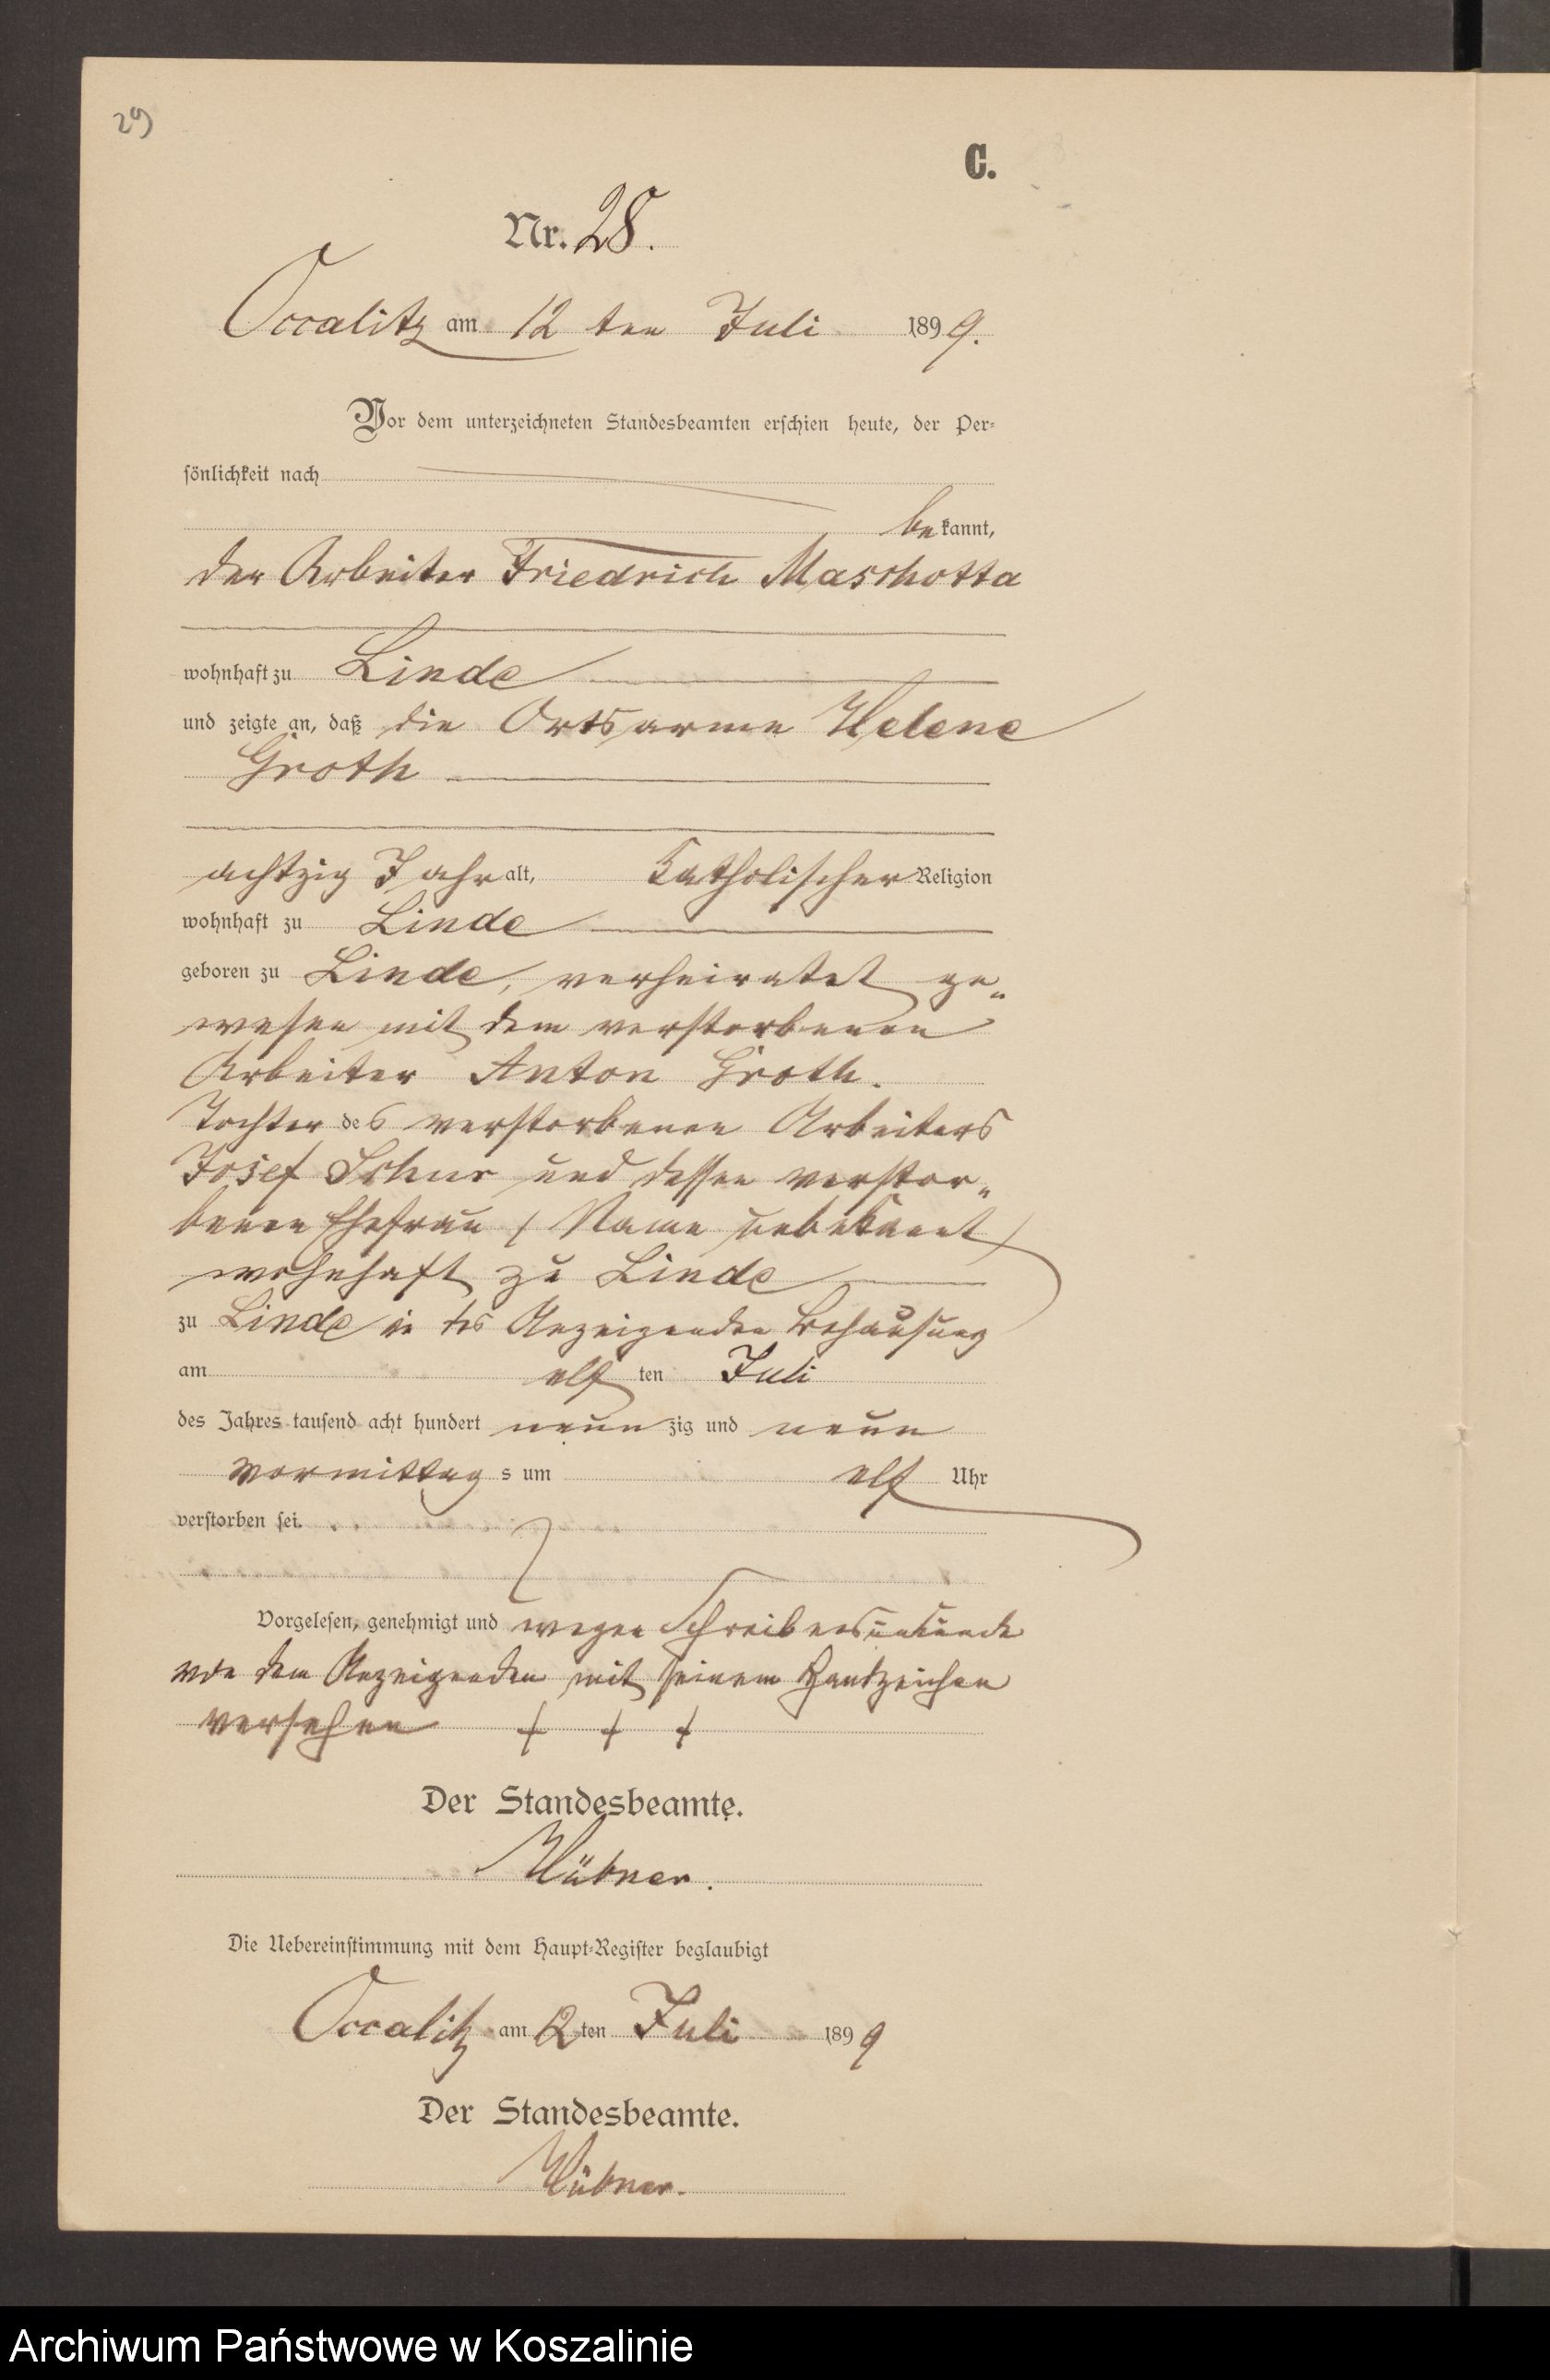 29
C.
Nr. 28.
Occalitz am 12 ten Juli 1899.
Vor dem unterzeichneten Standesbeamten erschien heute, der Per-
sönlichkeit nach
bekannt,
der Arbeiter Friedrich Maschotta
wohnhaft zu Linde
und zeigte an, daß die Ortsarme Helene
Groth
achtzig Jahr alt, katholischer Religion
wohnhaft zu Linde
geboren zu Linde, verheiratet ge-
wesen mit dem verstorbenen
Arbeiter Anton Groth.
Tochter des verstorbenen Arbeiters
Josef Schur und dessen verstor-
benen Ehefrau (Name unbekannt)
wohnhaft zu Linde
zu Linde in des Anzeigenden Behausung
am elf ten Juli
des Jahres tausend acht hundert neunzig und neun
Vormittags um elf Uhr
verstorben sei.
Vorgelesen, genehmigt und wegen Schreibensunkunde
von dem Anzeigenden mit seinem Handzeichen
versehen + + +
Der Standesbeamte.
Hübner.
Die Uebereinstimmung mit dem Haupt-Register beglaubigt
Occalitz am 12ten Juli 1899
Der Standesbeamte.
Hübner.
Archiwum Państwowe w Koszalinie